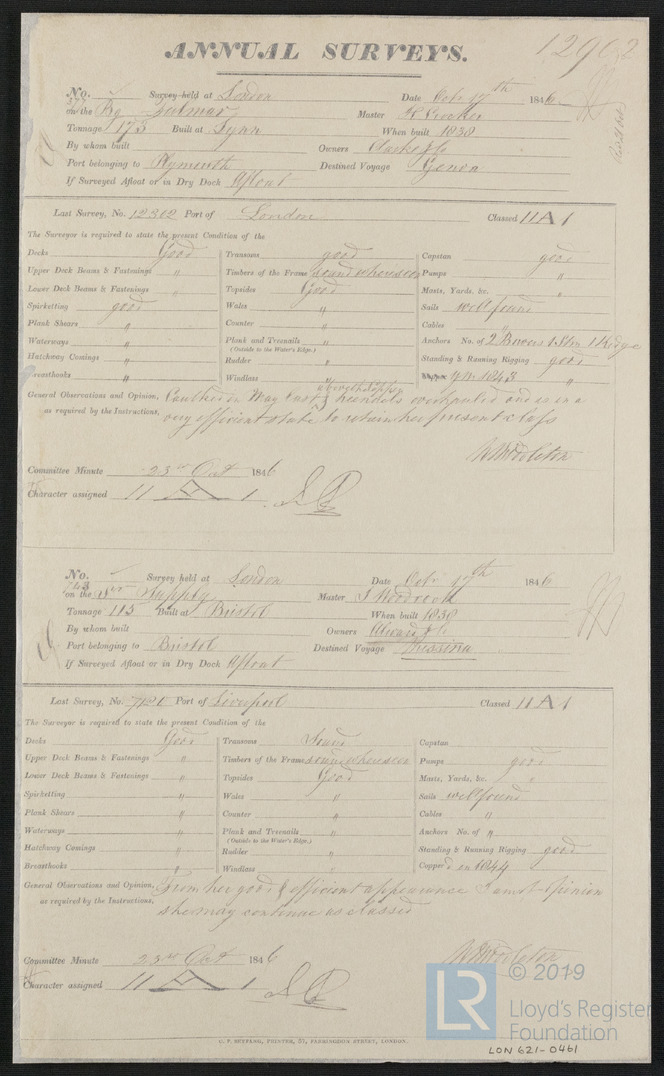 12902
ANNUAL SURVEYS.
No. Survey held at London Date Octr 17th 1846
on the Bg Zulmar Master
Tonnage 173 Built at Lynn When built 1838
By whom built Owners Clarke & Co
Port belonging to Plymouth Destined Voyage Genoa
If Surveyed Afloat or in Dry Dock Afloat
Last Survey, No. 12302 Port of London Classed 11 A 1
The Surveyor is required to state the present Condition of the
Decks Good Transoms good Capstan good
Upper Deck Beams & Fastenings " Timbers of the Frame sound where seen Pumps "
Lower Deck Beams & Fastenings " Topsides Good Masts, Yards, &c. "
Spirketting good Wales " Sails well found
Plank Shears " Counter " Cables "
Waterways " Plank and Treenails " Anchors No. of 2 Bowers 1 Strm 1 Kedge
(Outside to the Water's Edge.)
Hatchway Comings " Rudder " Standing & Running Rigging good
Breasthooks " Windlass " 1843 "
General Observations and Opinion, Caulked in May last & overhauled and is in a
as required by the Instructions, very efficient state to retain her present class
Committee Minute 23rd Oct 1846
Character assigned 11 A 1
No. Survey held at London Date Octr 17th 1846
743
on the Supply Master J Woodcock
Tonnage 115 Built at Bristol When built 1838
By whom built Owners
Port belonging to Bristol Destined Voyage Messina
If Surveyed Afloat or in Dry Dock Afloat
Last Survey, No. Port of Liverpool Classed 11 A 1
The Surveyor is required to state the present Condition of the
Decks Good Transoms Sound Capstan
Upper Deck Beams & Fastenings " Timbers of the Frame sound where seen Pumps good
Lower Deck Beams & Fastenings " Topsides Good Masts, Yards, &c. "
Spirketting " Wales " Sails well found
Plank Shears " Counter " Cables "
Waterways " Plank and Treenails " Anchors No. of "
(Outside to the Water's Edge.)
Hatchway Comings " Rudder " Standing & Running Rigging good
Breasthooks " Windlass " Copper'd in 1844
General Observations and Opinion, From her good & efficient appearance I am of Opinion
as required by the Instructions, she may continue as classed
Committee Minute 23rd Oct 1846
Character assigned 11 A 1
LR © 2019
Lloyd's Register
Foundation
LON 621-0461